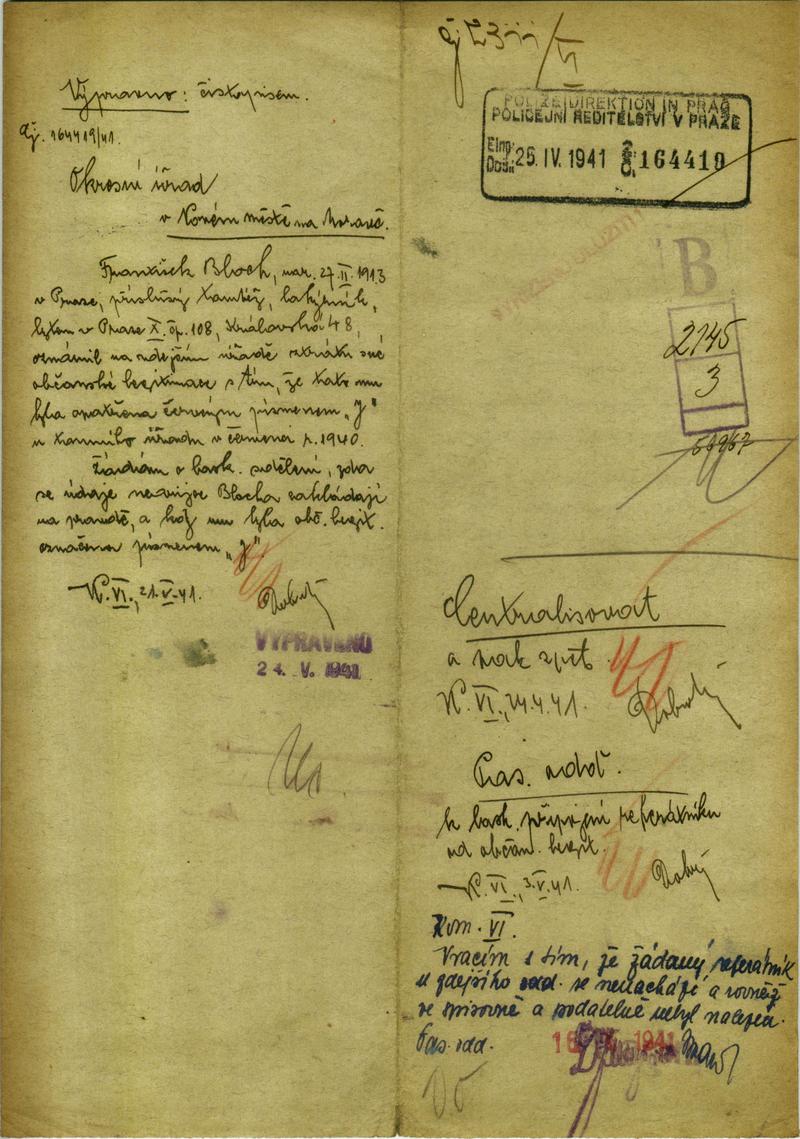 Vypraveno: čistopisem.
čj. 164419/41.
Okresní úřad
v Novém městě na Moravě.
František Bloch, nar. 27.II.1913
v Praze, příslušný tamtéž,
bytem v Praze X. čp. 108, Královská 48,
oznámil na zdejším úřadě ztrátu své
občanské legitimace s tím, že tato mu
byla opatřena červeným písmenem „J"
u tamního úřadu v červenci r. 1940.
Žádám o lask. sdělení, zda
se údaje Blocha zakládají
na pravdě, a kdy mu byla obč. legit.
označena písmenem „J"
K.VI., 21.V.41.
VYPRAVENO
24. V. 1941
čj 2311/VI
POLIZEIDIREKTION IN PRAG
POLICEJNÍ ŘEDITELSTVÍ V PRAZE
Eing. Doš. 25. IV. 1941 164419
B
2145
3
Centralisovat
a pak zpět.
K.VI., 24.4.41.
Pas. odd.
k lask. připojení referátníku
od občan. legit.
K.VI., 3.V.41.
Kom. VI.
Vracím s tím, že žádaný referátník
u zdejšího odd. se nenachází a rovněž
ve spisovně a podatelně nebyl nalezen.
Pas. odd.
1941